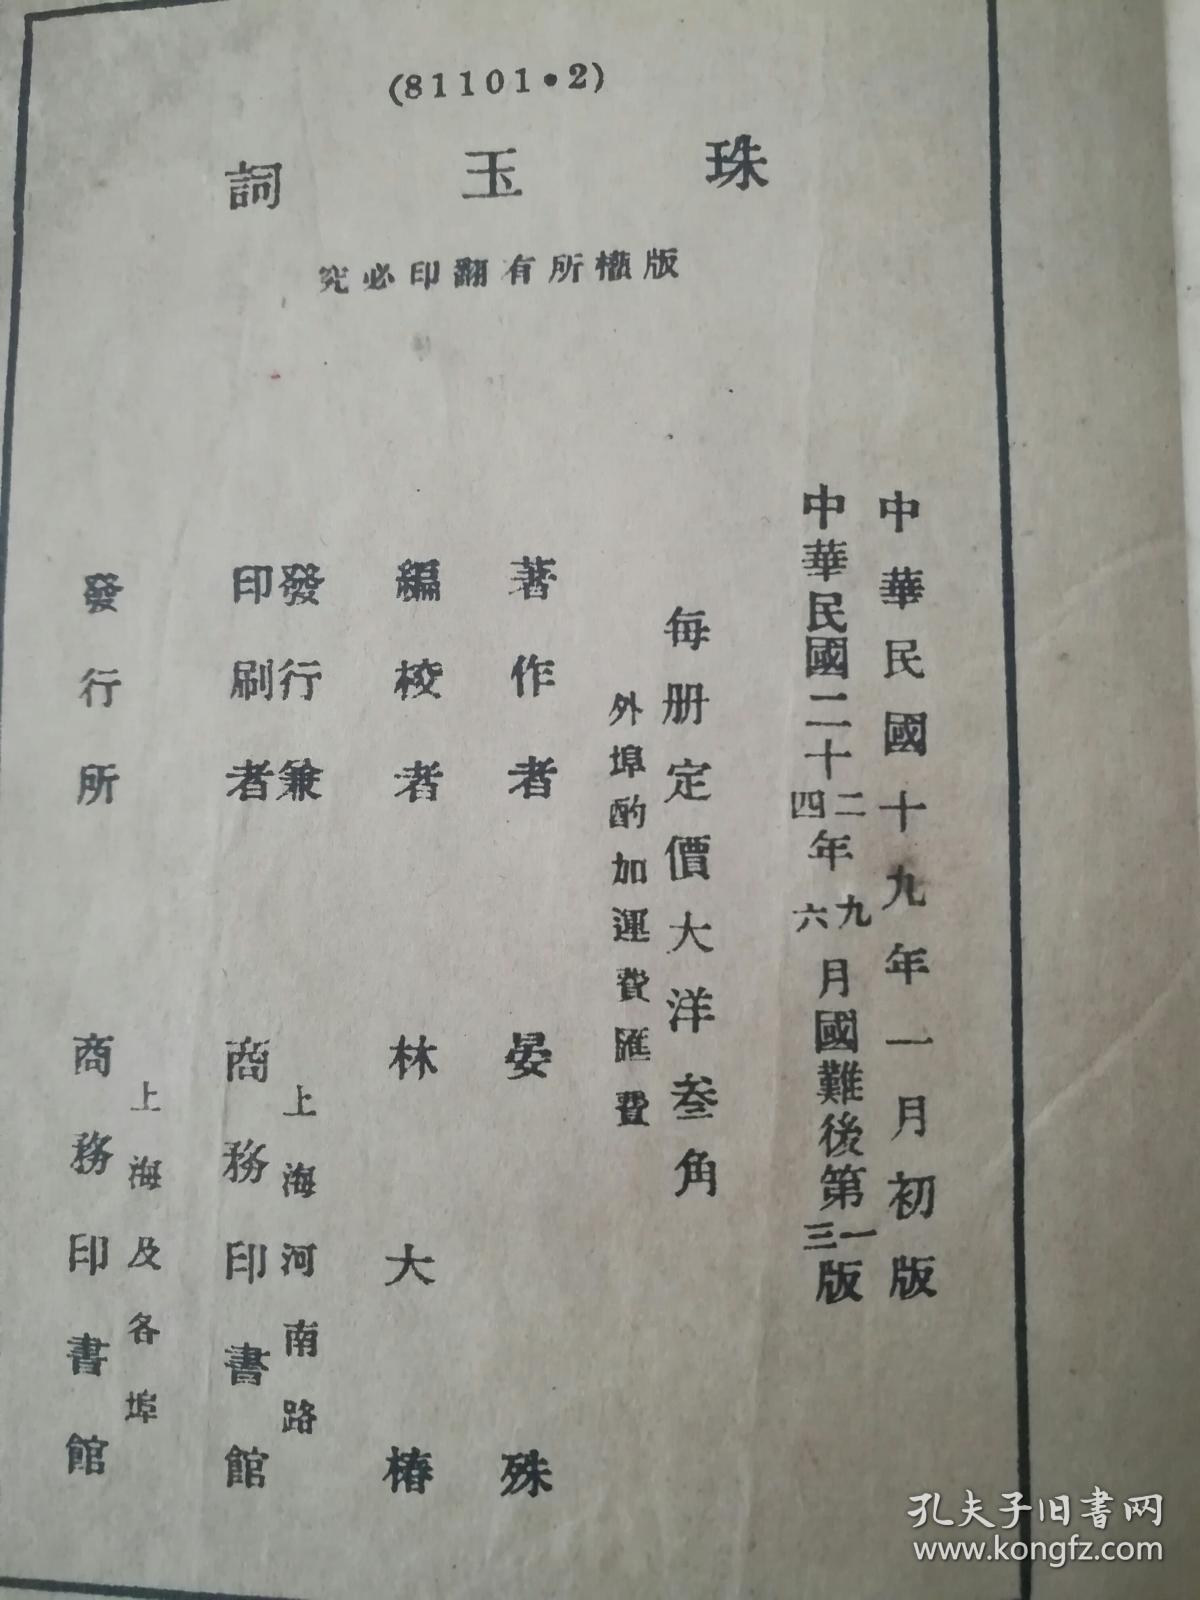 (81101•2)
珠玉詞
版權所有翻印必究
中華民國十九年一月初版
中華民國二十二四年九六月國難後第一三版
每册定價大洋叁角
外埠酌加運費匯費
著作者 晏殊
編校者 林大椿
發行兼
印刷者
上海河南路
商務印書館
發行所
上海及各埠
商務印書館
孔夫子旧书网
www.kongfz.com